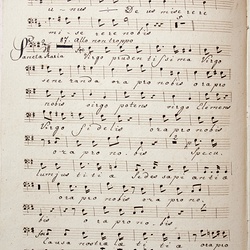 unus Deus misere re
mi se rere nobis
17. Allo non troppo
Sancta Maria Virgo prudentissima Virgo
veneranda ora pro nobis ora pro
nobis virgo potens virgo Clemens
Virgo fidelis ora pro nobis
ora pro nobis Specu
lum justitiae sedes sapientia
ora pro nobis ora pro no
bis ora pro nobis
Causa nostra laetitia ora pro